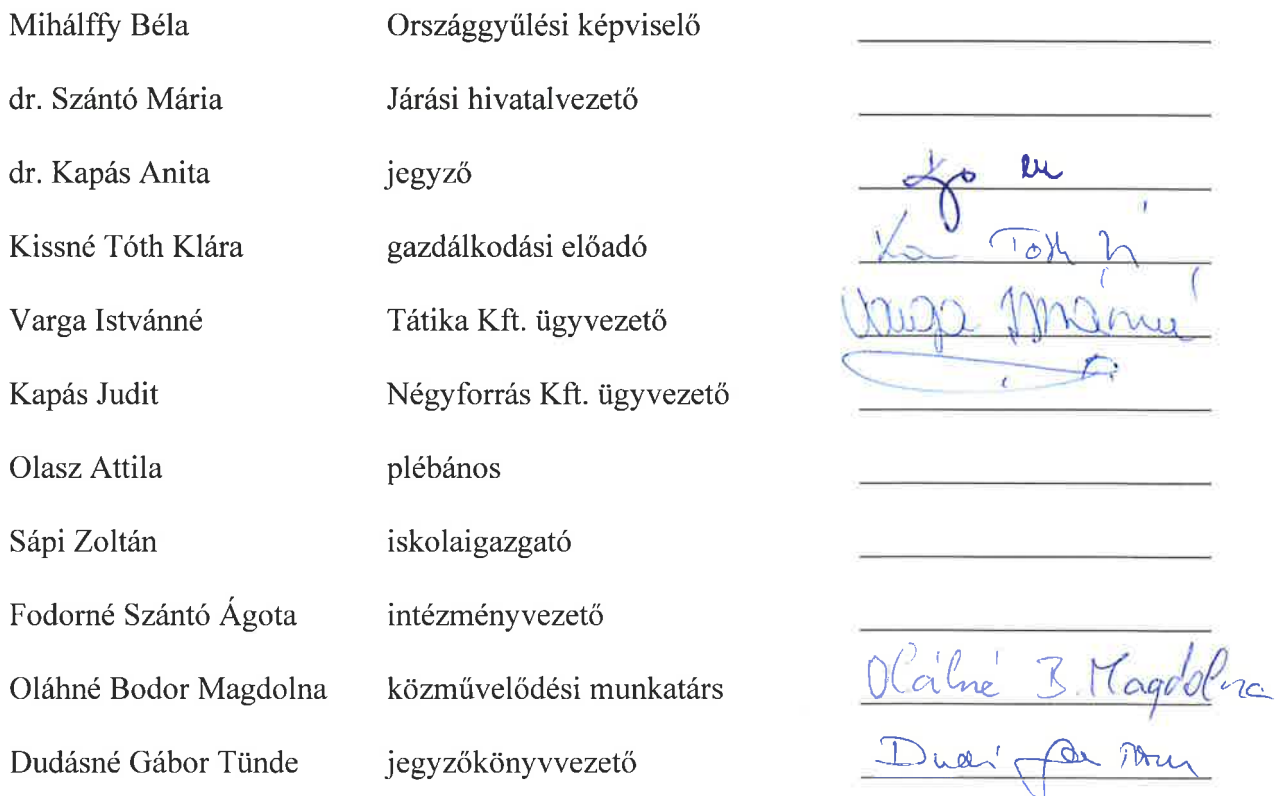 Mihálffy Béla Országgyűlési képviselő
dr. Szántó Mária Járási hivatalvezető
dr. Kapás Anita jegyző
Kissné Tóth Klára gazdálkodási előadó Tóth
Varga Istvánné Tátika Kft. ügyvezető Varga Istvánné
Kapás Judit Négyforrás Kft. ügyvezető
Olasz Attila plébános
Sápi Zoltán iskolaigazgató
Fodorné Szántó Ágota intézményvezető
Oláhné Bodor Magdolna közművelődési munkatárs Oláhné B. Magdolna
Dudásné Gábor Tünde jegyzőkönyvvezető